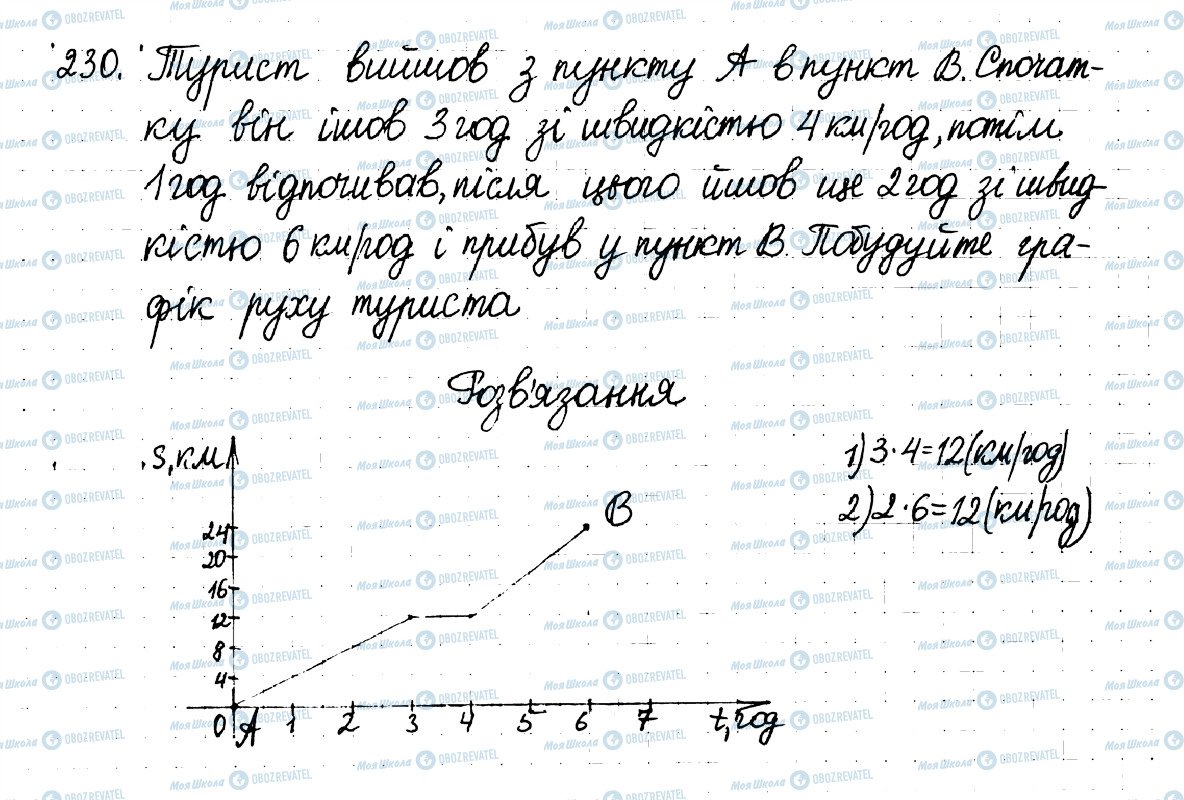 230. Турист вийшов з пункту А в пункт В. Спочат-
ку він ішов 3 год зі швидкістю 4 км/год, потім
1 год відпочивав, після цього йшов ще 2 год зі швид-
кістю 6 км/год і прибув у пункт В. Побудуйте гра-
фік руху туриста
Розв'язання
S, км
1) 3·4=12(км/год)
2) 2·6=12(км/год)
B
24
20
16
12
8
4
0 A 1 2 3 4 5 6 7 t, год
Моя Школа OBOZREVATEL